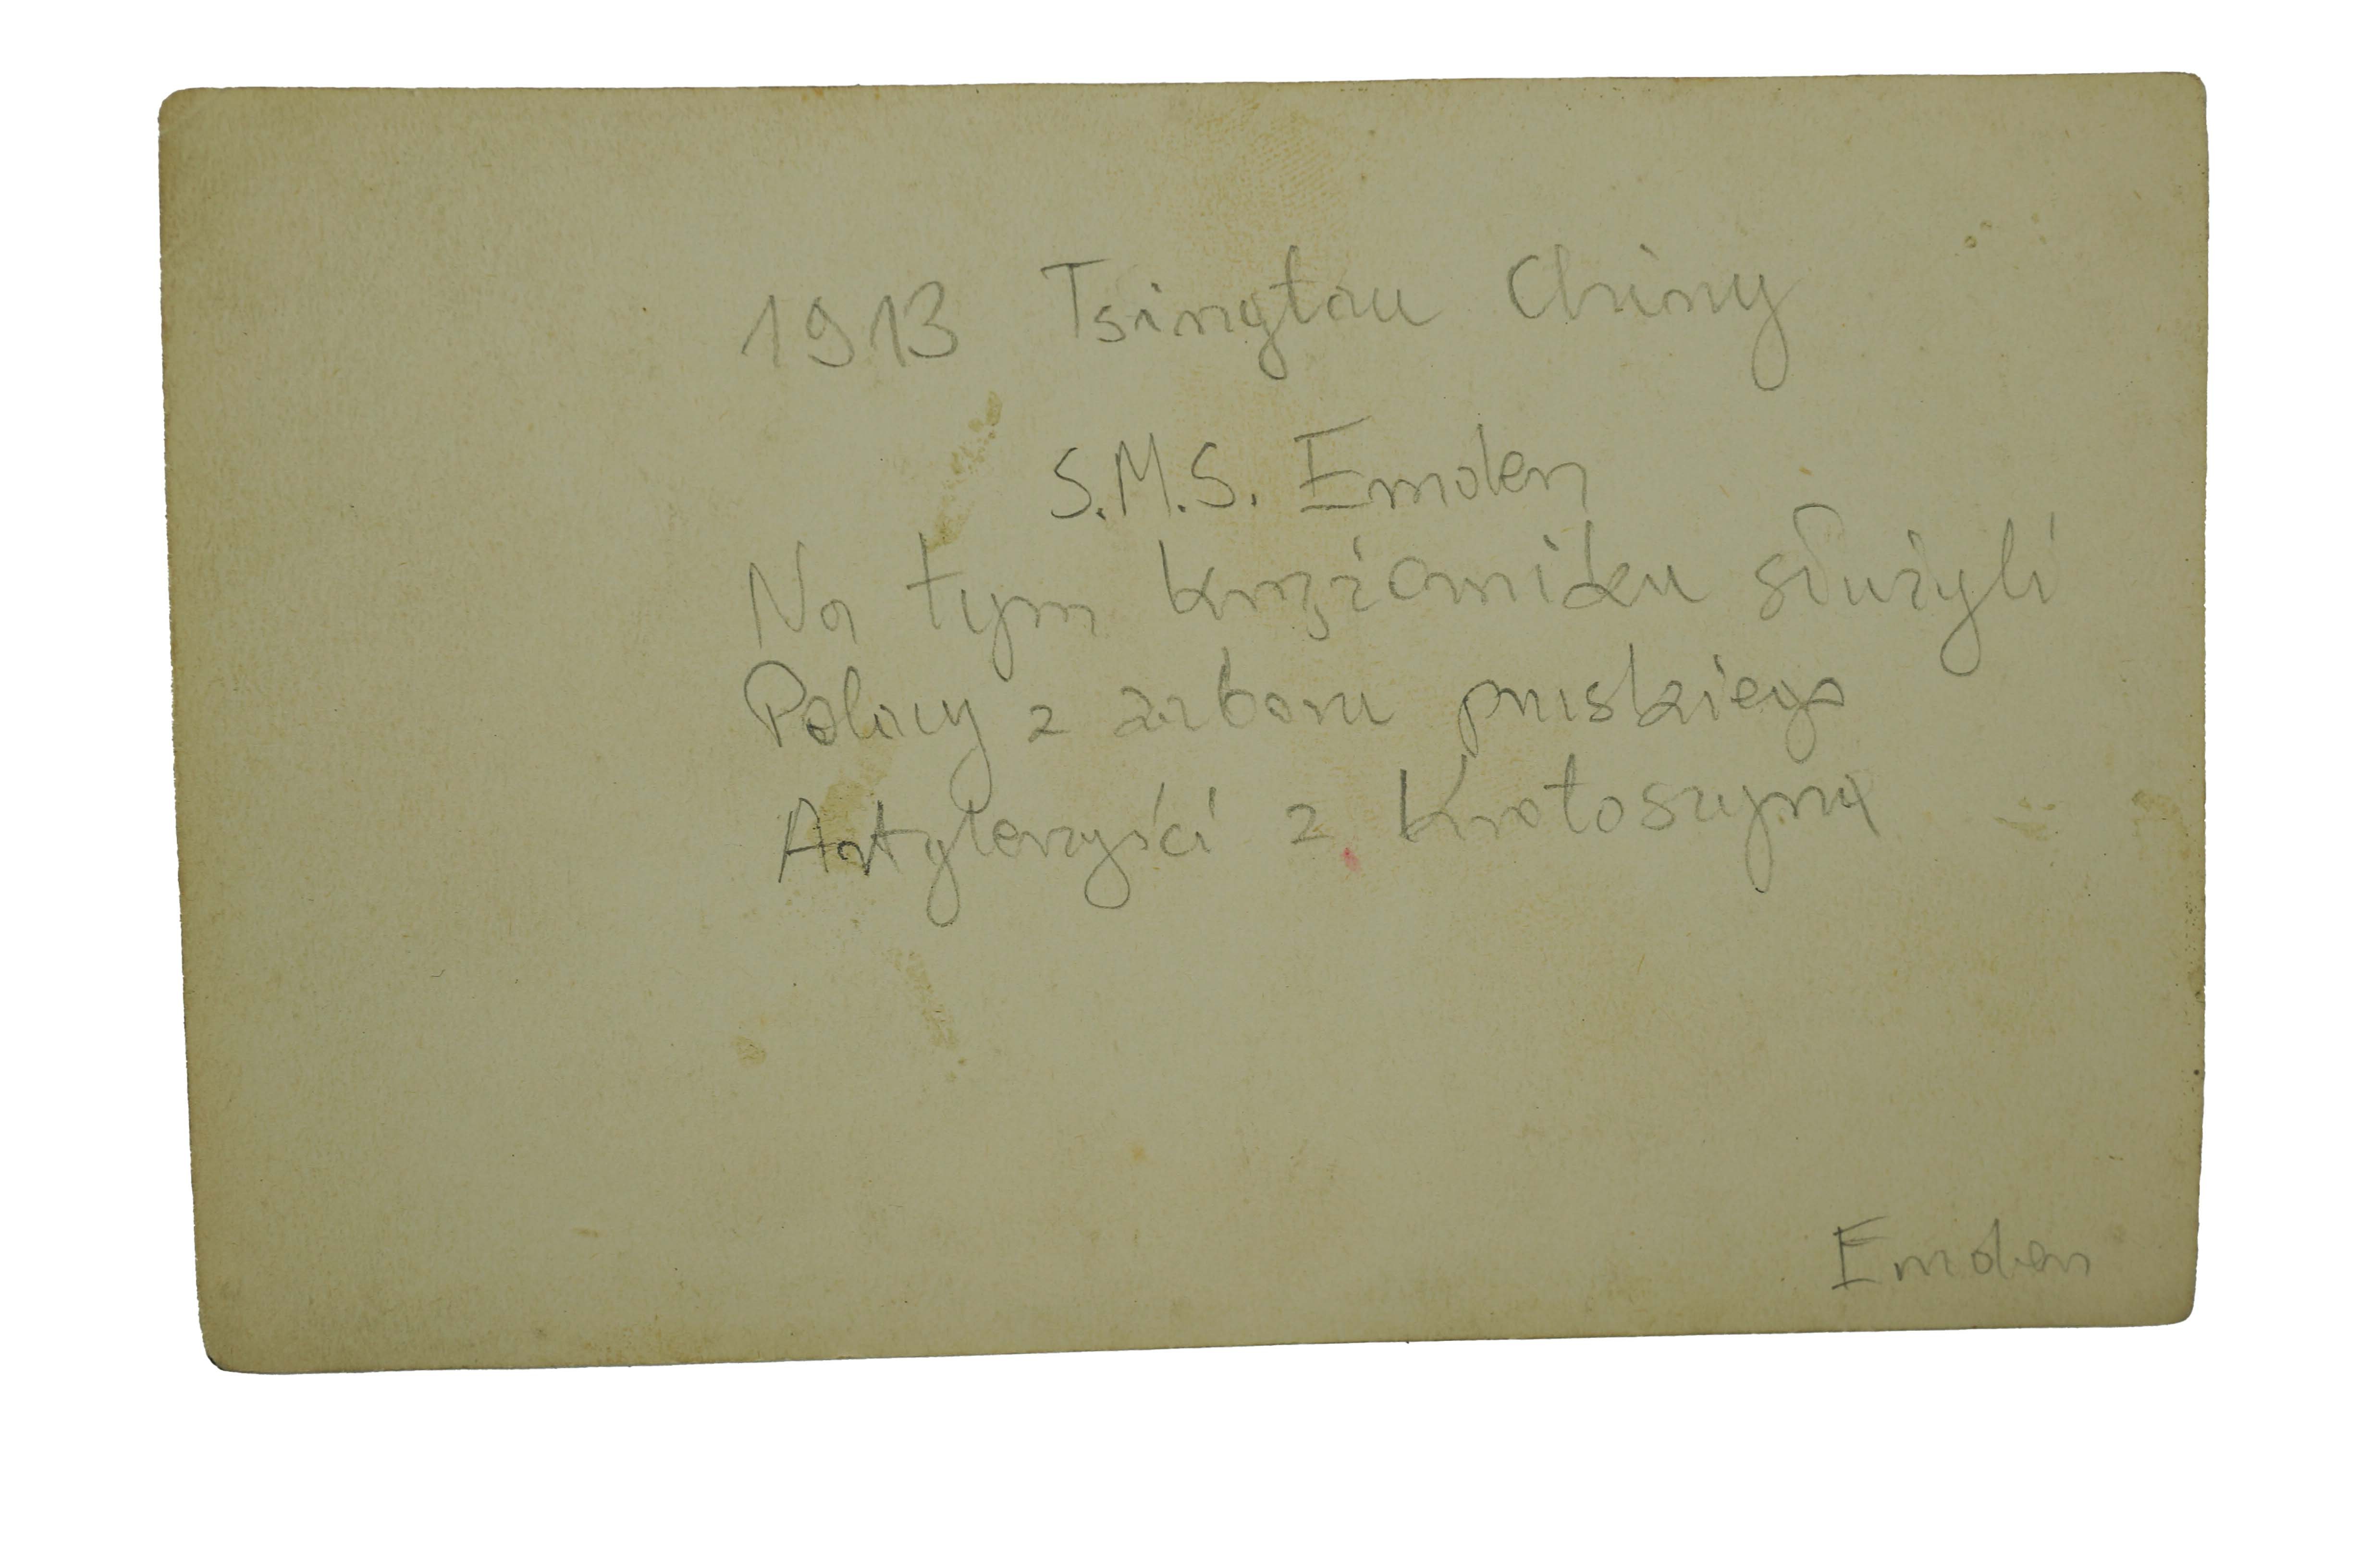 1913 Tsingtau Chiny
S.M.S. Emden
Na tym krążowniku służyli
Polacy z zaboru pruskiego
Artylerzyści z Krotoszyna
Emden